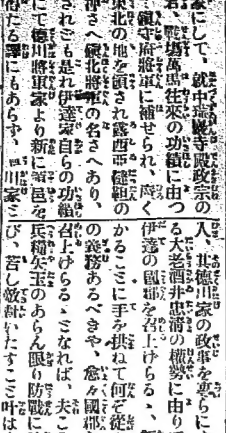 家にして、就中瑞巖寺殿政宗の
君、戰塲萬馬往來の功績に由つ
鎭守府將軍に補せられ、廣く
東北の地を領され露西亞韃靼の
さへ鎭北將軍の名さへあり、
されども是れ伊達家自らの功績
にて德川將軍家より新に邑を
得たる譯にもあらず、川家こ
人、其德川家の政事を專らに
る大老酒井忠淸の權勢に由り
伊達の國郡を召上げらるゝ、
かることに手を拱ねて何ぞ從
の義務あるべきや、愈々國郡
召上げらるゝとなれば、夫こ
兵糧矢玉のあらん限り防戰に
び、若し敵對いたすこと叶は